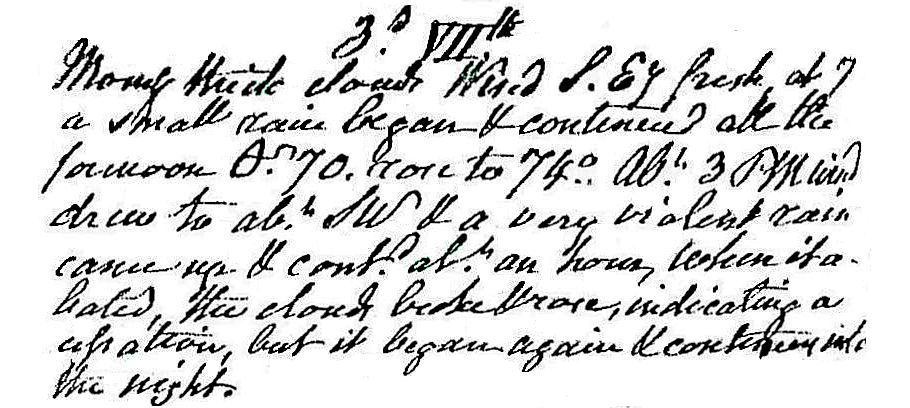 3.d VII.th
Morng thick clouds Wind S. Ey fresh, at 7
a small rain began & continued all the
forenoon Or. 70. rose to 74o. Abt. 3 PM wind
drew to abt. SW & a very violent rain
came up & contd. abt. an hour, when it a-
bated, the clouds broke & rose, indicating a
cessation, but it began again & continued into
the night.